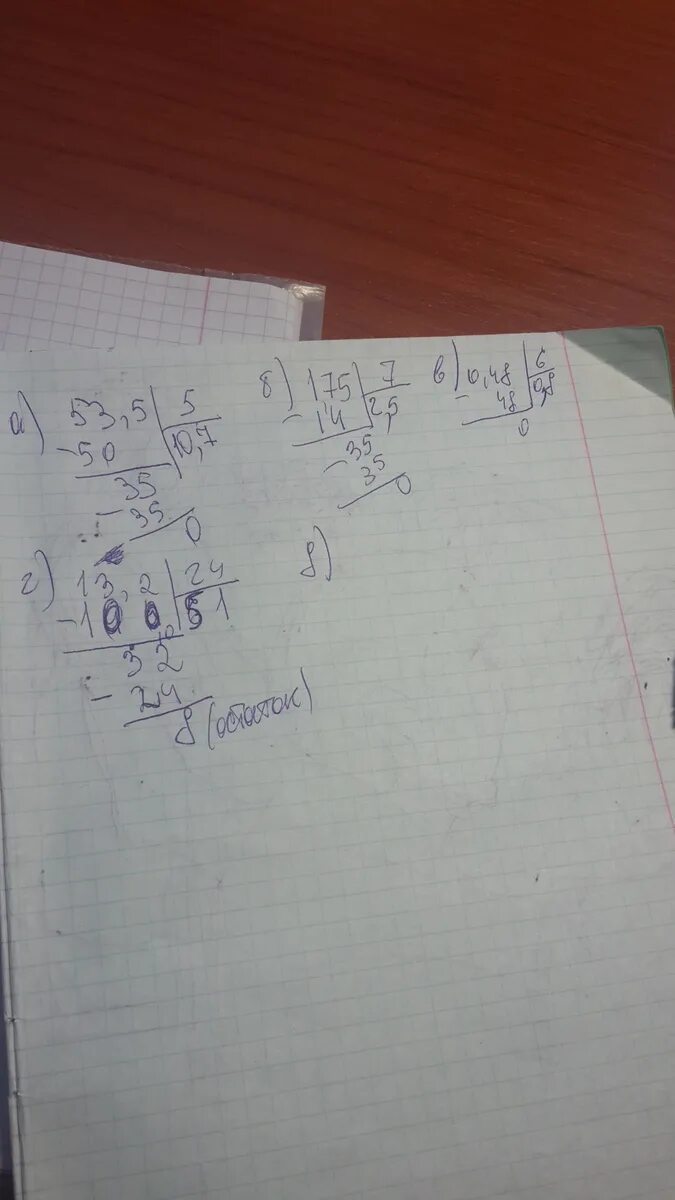 а) 53,5 | 5
-50 | 10,7
-35
35
0
б) 175 | 7
-14 | 2,5
-35
35
0
в) 0,48 | 6
-48 | 0,8
0
г) 13,2 | 24
-1
-32
24
8 (остаток)
д)